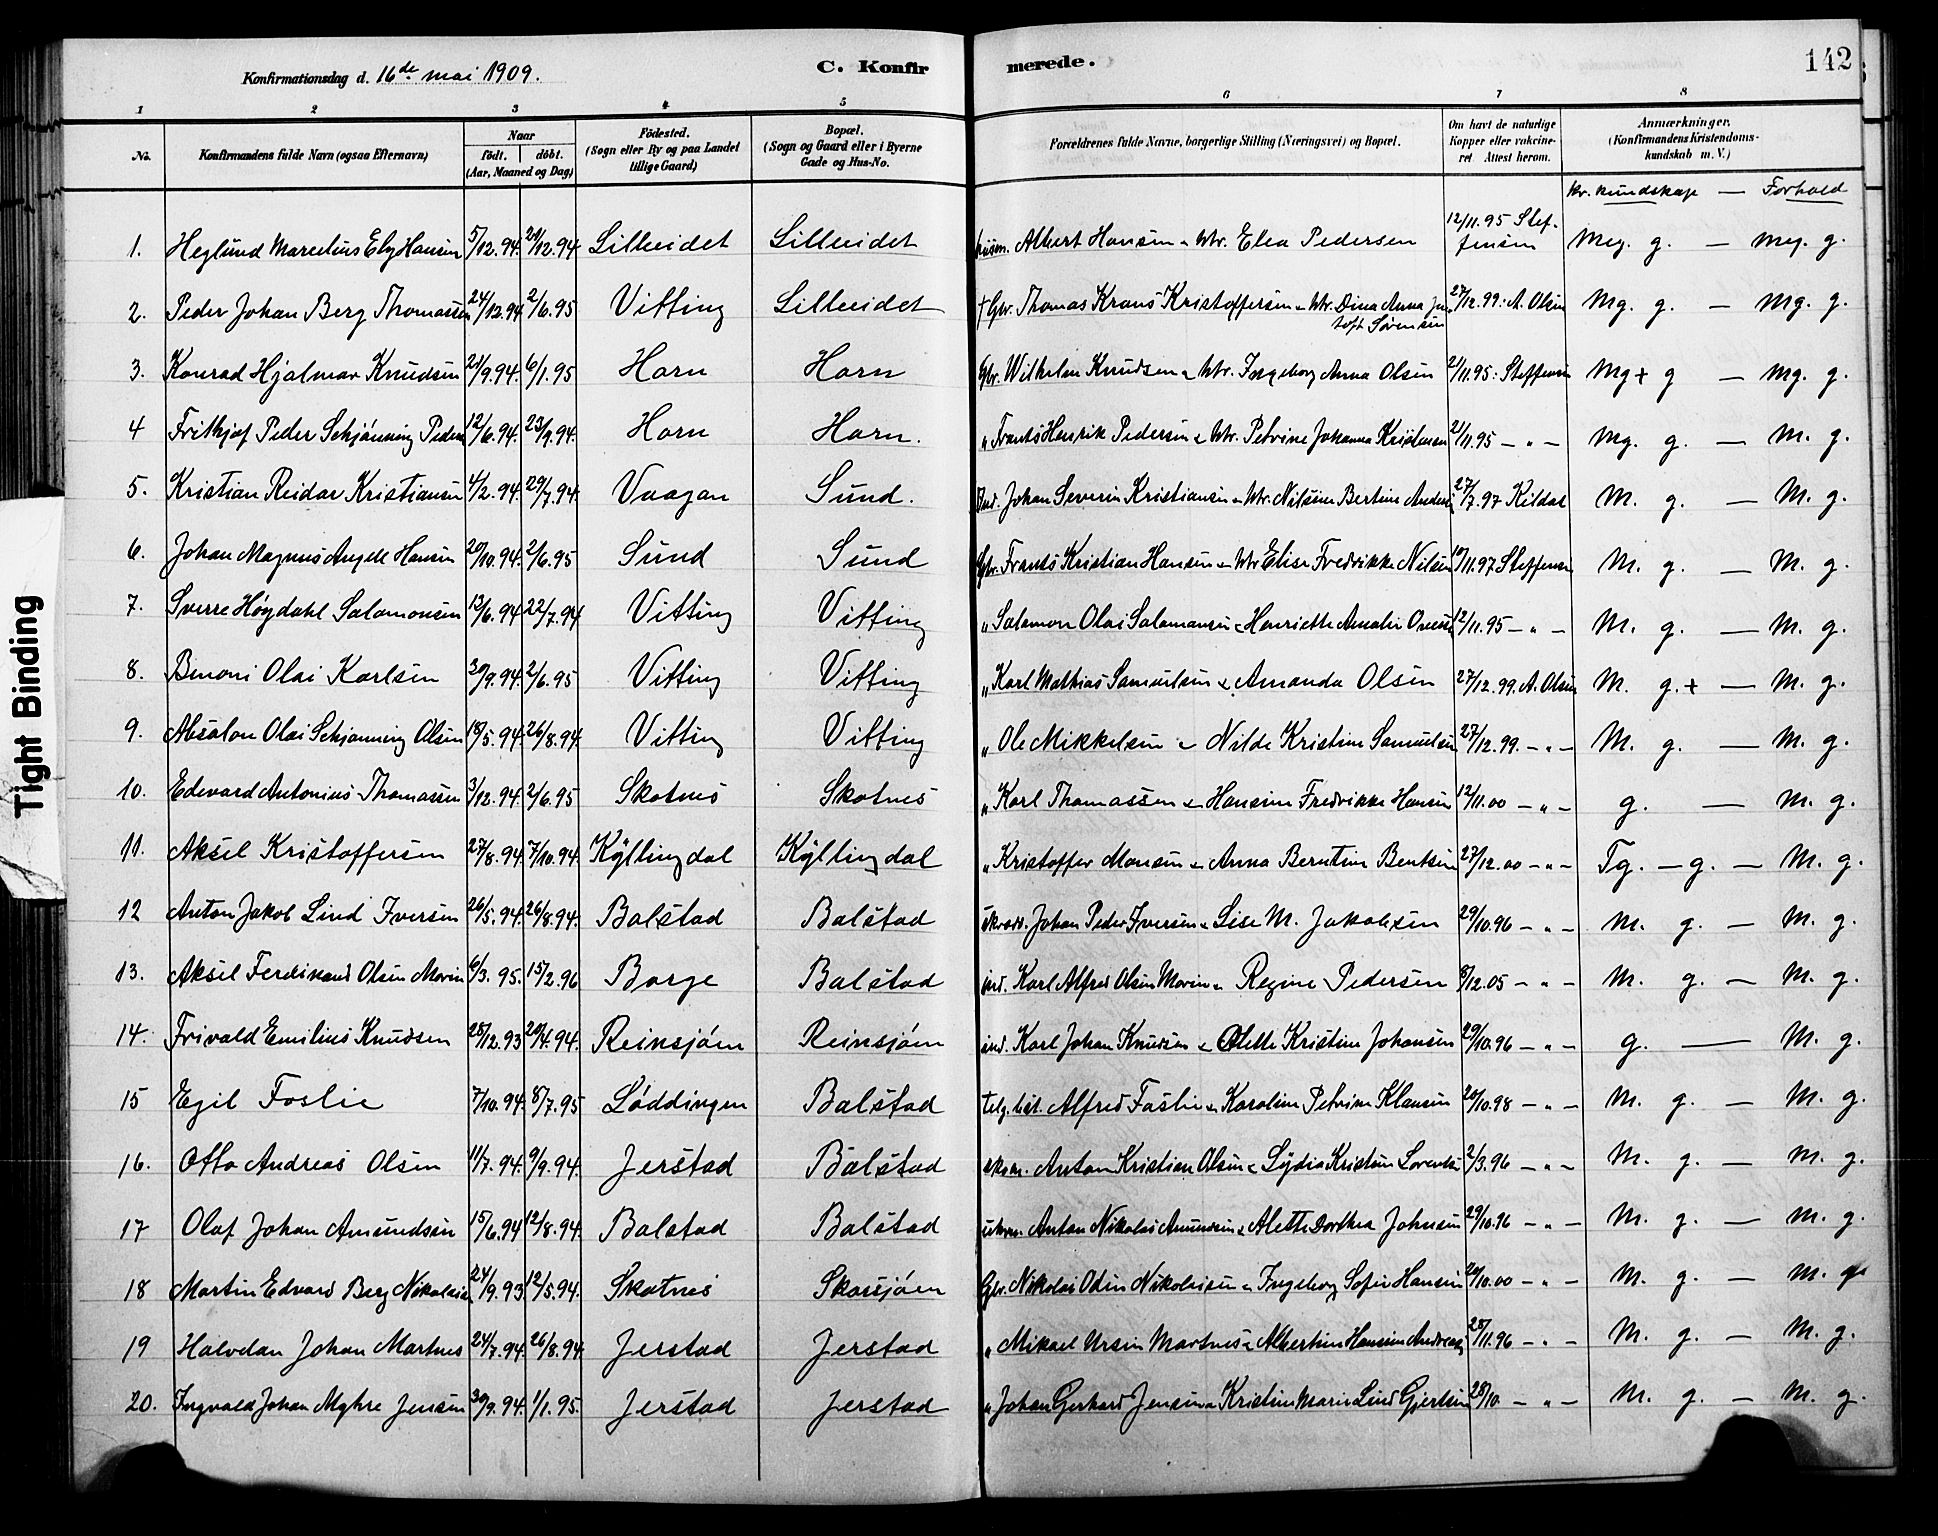 142
Konfirmationsdag d. 16de mai 1909.
C. Konfirmerede.
1 2 3 4 5 6 7 8
No.
Konfirmandens fulde Navn (ogsaa Efternavn)
Naar
födt. döbt.
(Aar, Maaned og Dag)
Födested.
(Sogn eller By og paa Landet
tillige Gaard)
Bopæl.
(Sogn og Gaard eller i Byerne
Gade og Hus-No.
Forældrenes fulde Navne, borgerlige Stilling (Næringsvei) og Bopæl.
Om havt de naturlige
Kopper eller vakcine-
ret Attest herom.
Anmærkninger.
(Konfirmandens Kristendoms-
kundskab m. V.)
kr. kundskap — Forhold
1. Heglund Marelius Hansen 5/12.94. /12.94 Lilleeidet Lilleeidet husm. Albert Hansen & htr. Elea Pedersen 12/11.95 Steffensen Meg. g. — meg. g.
2. Peder Johan Berg Thomassen 24/12.94 2/6.95 Vitting Lilleeidet † Gbr. Thomas Krans Kristoffersen & htr. Dina Anna Jentoft Sørensen 27/12.99: A. Olsen Mg. g. — Mg. g.
3. Konrad Hjalmar Knudsen 21/9.94. 6/1.95 Horn Horn Gbr. Wilhelm Knudsen & htr. Ingeborg Anna Olsen 2/11.95: Steffensen Mg+ g — mg. g.
4 Frithjof Peder Schjønning Peders 12/6.94. 23/9.94. Horn Horn. " Frants Henrik Pedersen & htr. Petrine Johanna Kristensen 2/11.95 – " – Mg. g. — M. g.
5. Kristian Reidar Kristiansen 4/2.94. 29/7.94. Vaagan Sund. Ind. Johan Severin Kristiansen & htr. Nilsine Bertine Anders 27/7.97 Kildal M. g. — M. g.
6. Johan Magnus Angell Hansen 20/10.94. 2/6.95 Sund Sund Gbr. Frants Kristian Hansen & htr Elise Fredrikke Nilsen 10/11.97 Steffensen M. g. — M. g.
7. Sverre Høgdahl Salomonsen 13/6.94 22/7.94 Vitting Vitting " Salomon Olai Salamonsen & Henriette Amalie 12/11.95 – " – M. g. — M. g.
8. Benoni Olai Karlsen 30/9.94. 2/6.95 Vitting Vitting " Karl Mathias Samuelsen & Amanda Olsen 27/12.99. A. Olsen M. g.+ — M. g.
9. Absalon Olai Schjønning Olsen 18/5.94 26/8.94. Vitting Vitting " Ole Mikkelsen & Nilde Kristine Samuelsen 27/12.99. – " – M. g. — M. g.
10. Edevard Antonius Thomassen 3/12.94. 2/6.95 Skotnes Skotnes " Karl Thomassen & Hansine Fredrikke Hansen 12/11.00 – " – g. — M. g.
11. Aksel Kristoffersen 27/8.94. 7/10.94. Kyllingdal Kyllingdal " Kristoffer Monsen & Anna Berntine Bentsen 27/12.00 – " – Tg. – g. — M. g.
12 Anton Jakob Lind Iversen 26/5.94. 26/8.94. Balstad Balstad Johan Peder Iversen & Lise M. Jakobsen 29/10.96 – " – M. g. — M. g.
13. Aksel Ferdinand Olsen Morin 6/3.95. 15/2.96 Borge Balstad ind. Karl Alfred Olsen Morin & Regine Pedersen 8/12.05 – " – M. g. — M. g.
14. Frivald Emilius Knudsen 28/12.93 20/4.94. Reinsjøen Reinsjøen ind. Karl Johan Knudsen & Olette Kristine Johansen 29/10.96 – " – g. — M. g.
15 Egil Foslie 7/10.94. 8/7.95 Løddingen Balstad telg.best. Alfred Foslie & Karoline Petrine Klausen 20/10.98 – " – M. g. — M. g.
16. Otto Andreas Olsen 11/7.94. 9/9.94. Jerstad Balstad Anton Kristian Olsen & Lydia Kristine Lorents 2/3.96 – " – M. g. — M. g.
17 Olaf Johan Amundsen 15/6.94 12/8.94. Balstad Balstad Anton Nikolai Amundsen & Alette Dorthea Johnsen 29/10.96 – " – M. g. — M. g.
18 Martin Edvard Berg Nikolaisen 24/9.93. 12/5.94. Skotnes Skarsjøen Gbr. Nikolai Odin Nikolaisen & Ingeborg Sofie Hansen 20/10.00 – " – M. g. — M. g
19 Halvdan Johan Martnes 24/7.94. 26/8.94 Jerstad Jerstad " Mikael Ursin Martnes & Albertine Hansine Andreas 28/11.96 – " – M. g. — M. g.
20. Ingvald Johan Myhre Jensen 30/9.94. 1/1.95. Jerstad Jerstad " Johan Gerhard Jensen & Kristine Marie Lind Gjertsen 28/10. – " – M. g. — M. g.
Tight Binding